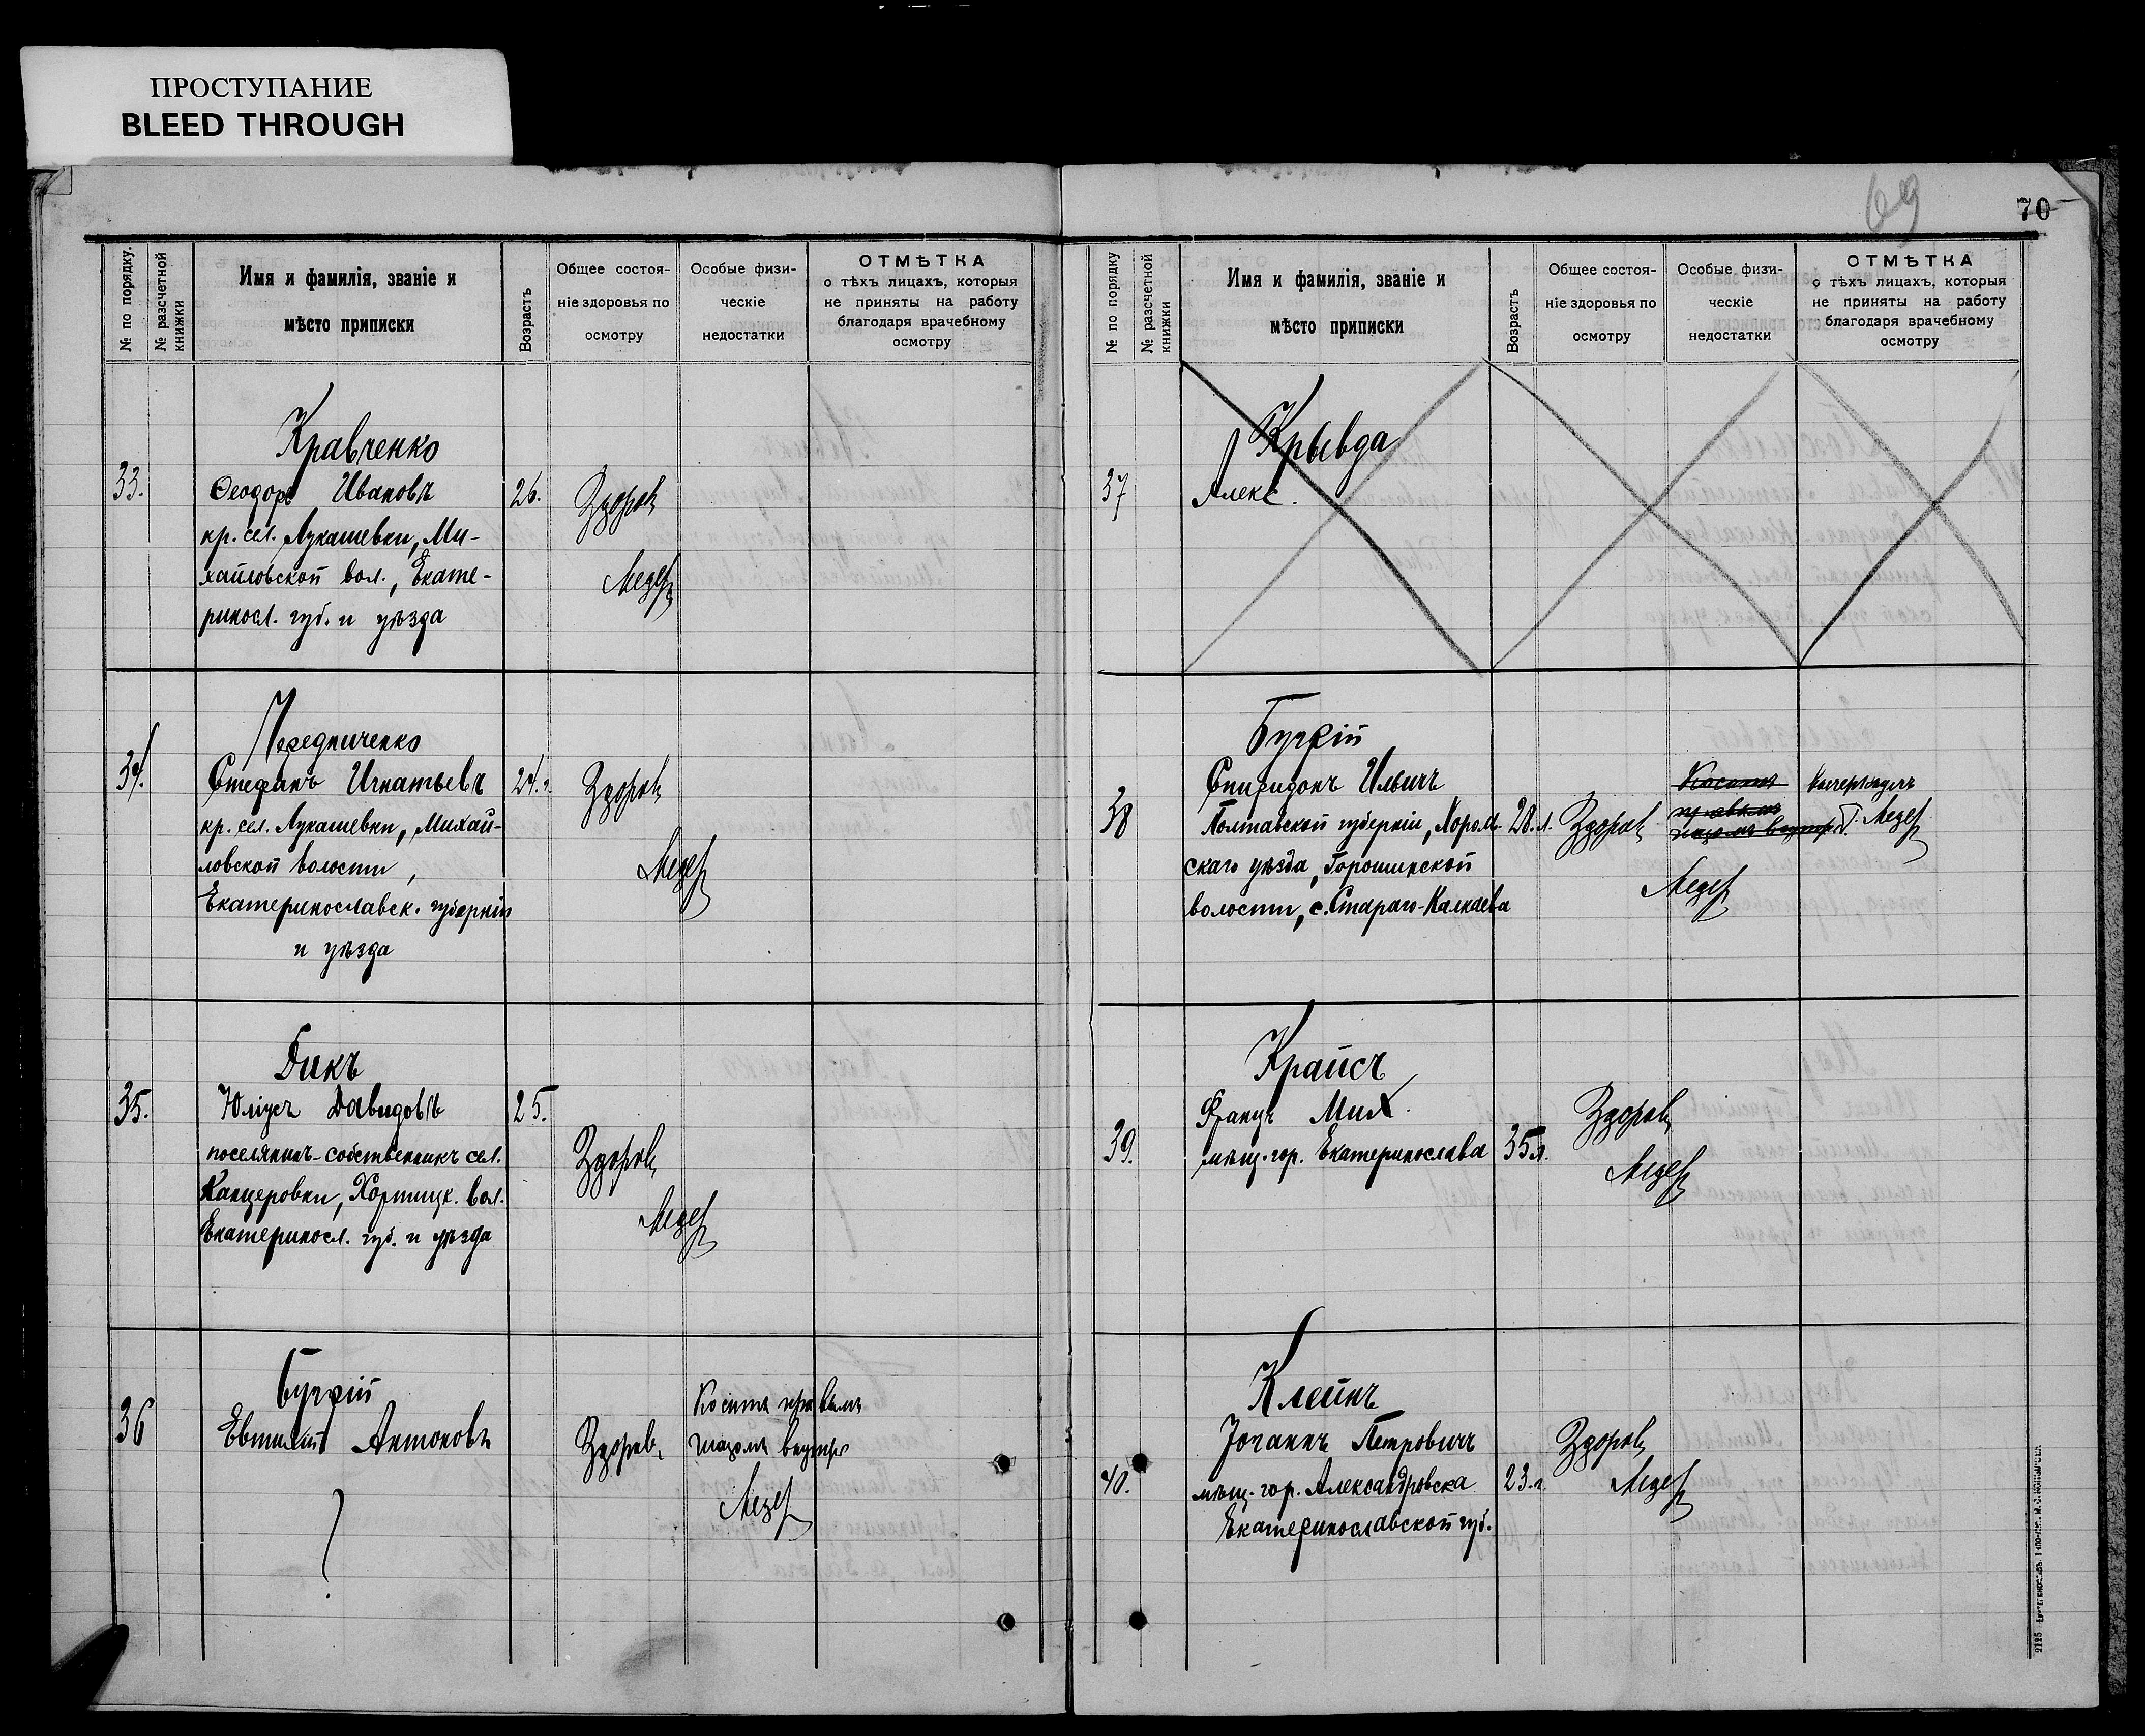 ПРОСТУПАНИЕ
BLEED THROUGH
69
70
№ по порядку.
№ разсчетной книжки
Имя и фамилія, званіе и
мѣсто приписки
Возрастъ
Общее состоя-
ніе здоровья по
осмотру
Особые физи-
ческіе
недостатки
ОТМѢТКА
о тѣхъ лицахъ, которыя
не приняты на работу
благодаря врачебному
осмотру
33.
Кравченко
Ѳеодоръ Ивановъ
кр. сел. Лукашевки, Ми-
хайловской вол., Екате-
риносл. губ. и уѣзда
26.
Здоровъ
34.
Передниченко
Стефанъ Игнатьевъ
кр. сел. Лукашевки, Михай-
ловской волости,
Екатеринославск. губерніи
и уѣзда
24.
Здоровъ
35.
Дикъ
Юліусъ Давидовъ
поселянинъ-собственникъ сел.
Канцеровки, Хортицк. вол.
Екатеринosл. губ. и уѣзда
25.
Здоровъ
36
Бугрій
Евтихій Антоновъ
?
Здоровъ
Косить правымъ
глазомъ внутрь
№ по порядку
№ разсчетной книжки
Имя и фамилія, званіе и
мѣсто приписки
Возрастъ
Общее состоя-
ніе здоровья по
осмотру
Особые физи-
ческіе
недостатки
ОТМѢТКА
о тѣхъ лицахъ, которыя
не приняты на работу
благодаря врачебному
осмотру
37
Крывда
Алекс.
38
Бугрій
Спиридонъ Ильичъ
Полтавской губерніи, Хорол-
скаго уѣзда, Горошинской
волости, с. Стараго-Калкаева
28.л.
Здоровъ
Косить
правымъ
глазомъ внутрь
39.
Крайсъ
Францъ Мих.
мѣщ. гор. Екатеринослава
35л.
Здоровъ
40.
Клейнъ
Іоганнъ Петровичъ
мѣщ. гор. Александровска
Екатеринославской губ.
23.г.
Здоровъ